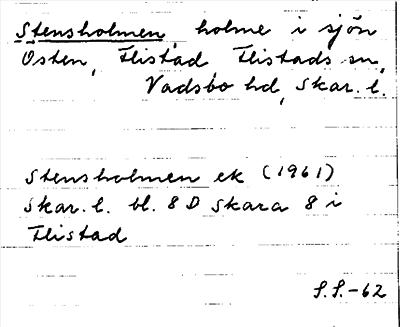 Stensholmen, holme i sjön
Östen, Flistad Flistads sn,
Vadsbo hd, Skar. l.
Stensholmen ek (1961)
Skar. l. bl. 8 D Skara 8 i
Flistad
S.S.-62